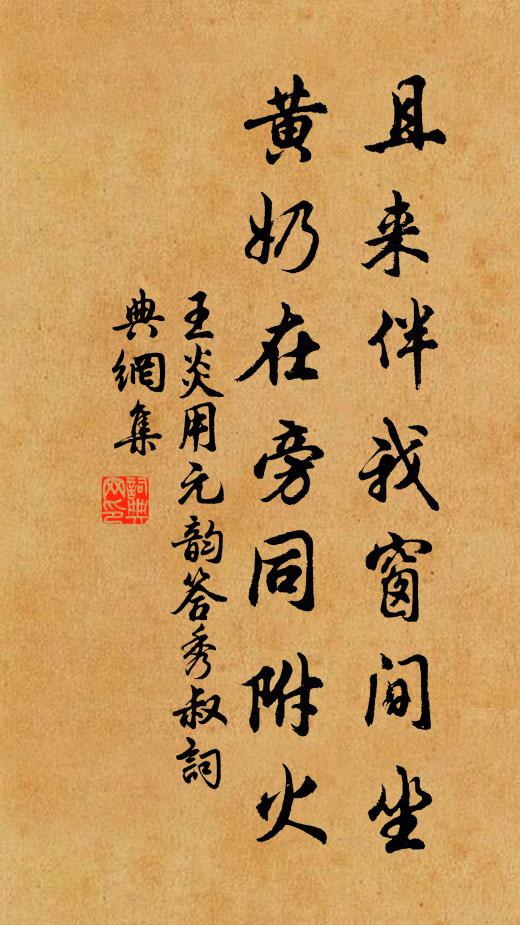 且来伴我窗间坐
黄奶在旁同附火
王炎用元韵答秀叔詞
典網集
詞典
网印